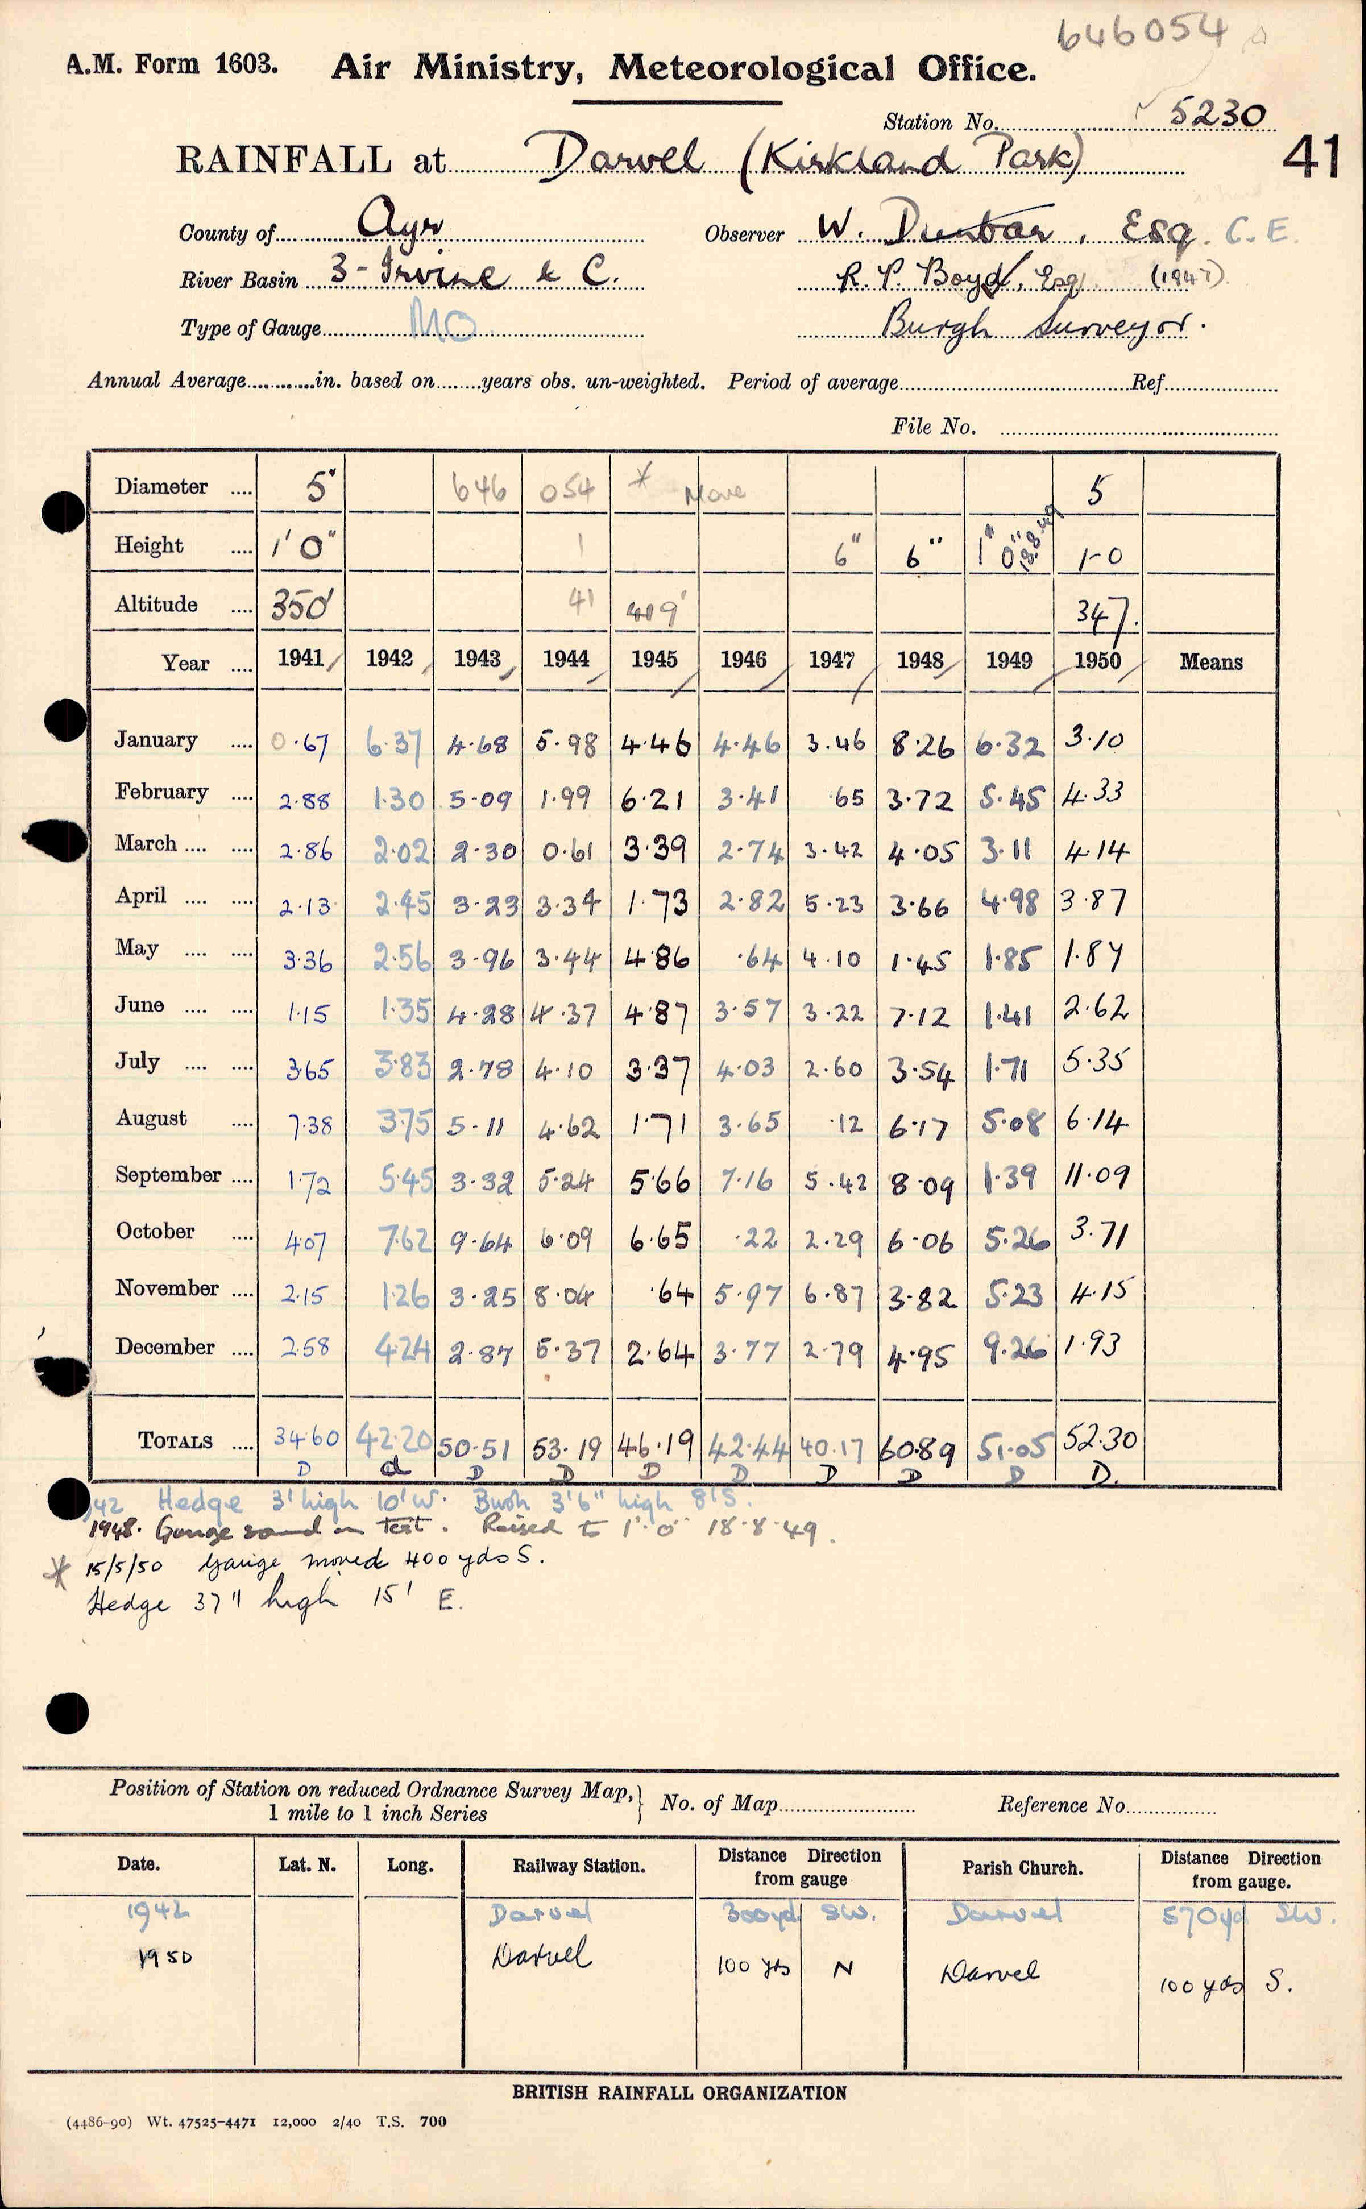 646054
A.M. Form 1603. Air Ministry, Meteorological Office.
Station No. 5230
RAINFALL at Darvel (Kirkland Park) 41
County of Ayr Observer W. Dunbar, Esq. C.E.
River Basin 3 - Irvine & C. R. P. Boyd, Esq (1947)
Type of Gauge MO Burgh Surveyor.
Annual Average in. based on years obs. un-weighted. Period of average Ref.
File No.
Diameter 5" 646 054 * Move 5
Height 1'0" 1 6" 6" 1' 0" 18.8.49 1-0
Altitude 350' 41 419' 347.
Year 1941 1942 1943 1944 1945 1946 1947 1948 1949 1950 Means
January 0.67 6.37 4.68 5.98 4.46 4.46 3.46 8.26 6.32 3.10
February 2.88 1.30 5.09 1.99 6.21 3.41 65 3.72 5.45 4.33
March 2.86 2.02 2.30 0.61 3.39 2.74 3.42 4.05 3.11 4.14
April 2.13 2.45 3.23 3.34 1.73 2.82 5.23 3.66 4.98 3.87
May 3.36 2.56 3.96 3.44 4.86 .64 4.10 1.45 1.85 1.87
June 1.15 1.35 4.28 4.37 4.87 3.57 3.22 7.12 1.41 2.62
July 3.65 3.83 2.78 4.10 3.37 4.03 2.60 3.54 1.71 5.35
August 7.38 3.75 5.11 4.62 1.71 3.65 .12 6.17 5.08 6.14
September 1.72 5.45 3.32 5.24 5.66 7.16 5.42 8.09 1.39 11.09
October 4.07 7.62 9.64 6.09 6.65 .22 2.29 6.06 5.26 3.71
November 2.15 1.26 3.25 8.04 .64 5.97 6.87 3.82 5.23 4.15
December 2.58 4.24 2.87 5.37 2.64 3.77 2.79 4.95 9.26 1.93
TOTALS 34.60 42.20 50.51 53.19 46.19 42.44 40.17 60.89 51.05 52.30
D d D D D D D D D D.
42 Hedge 3' high 10' W. Bush 3'6" high 8' S.
1948. Gauge sound on test. Raised to 1'.0" 18.8.49.
* 15/5/50 Gauge moved 400 yds S.
Hedge 37" high 15' E.
Position of Station on reduced Ordnance Survey Map, 1 mile to 1 inch Series No. of Map Reference No.
Date. Lat. N. Long. Railway Station. Distance Direction from gauge Parish Church. Distance Direction from gauge.
1942 Darvel 300yd SW. Darvel 570yd SW.
1950 Darvel 100 yds N Darvel 100 yds S.
BRITISH RAINFALL ORGANIZATION
(4486-90) Wt. 47525-4471 12,000 2/40 T.S. 700